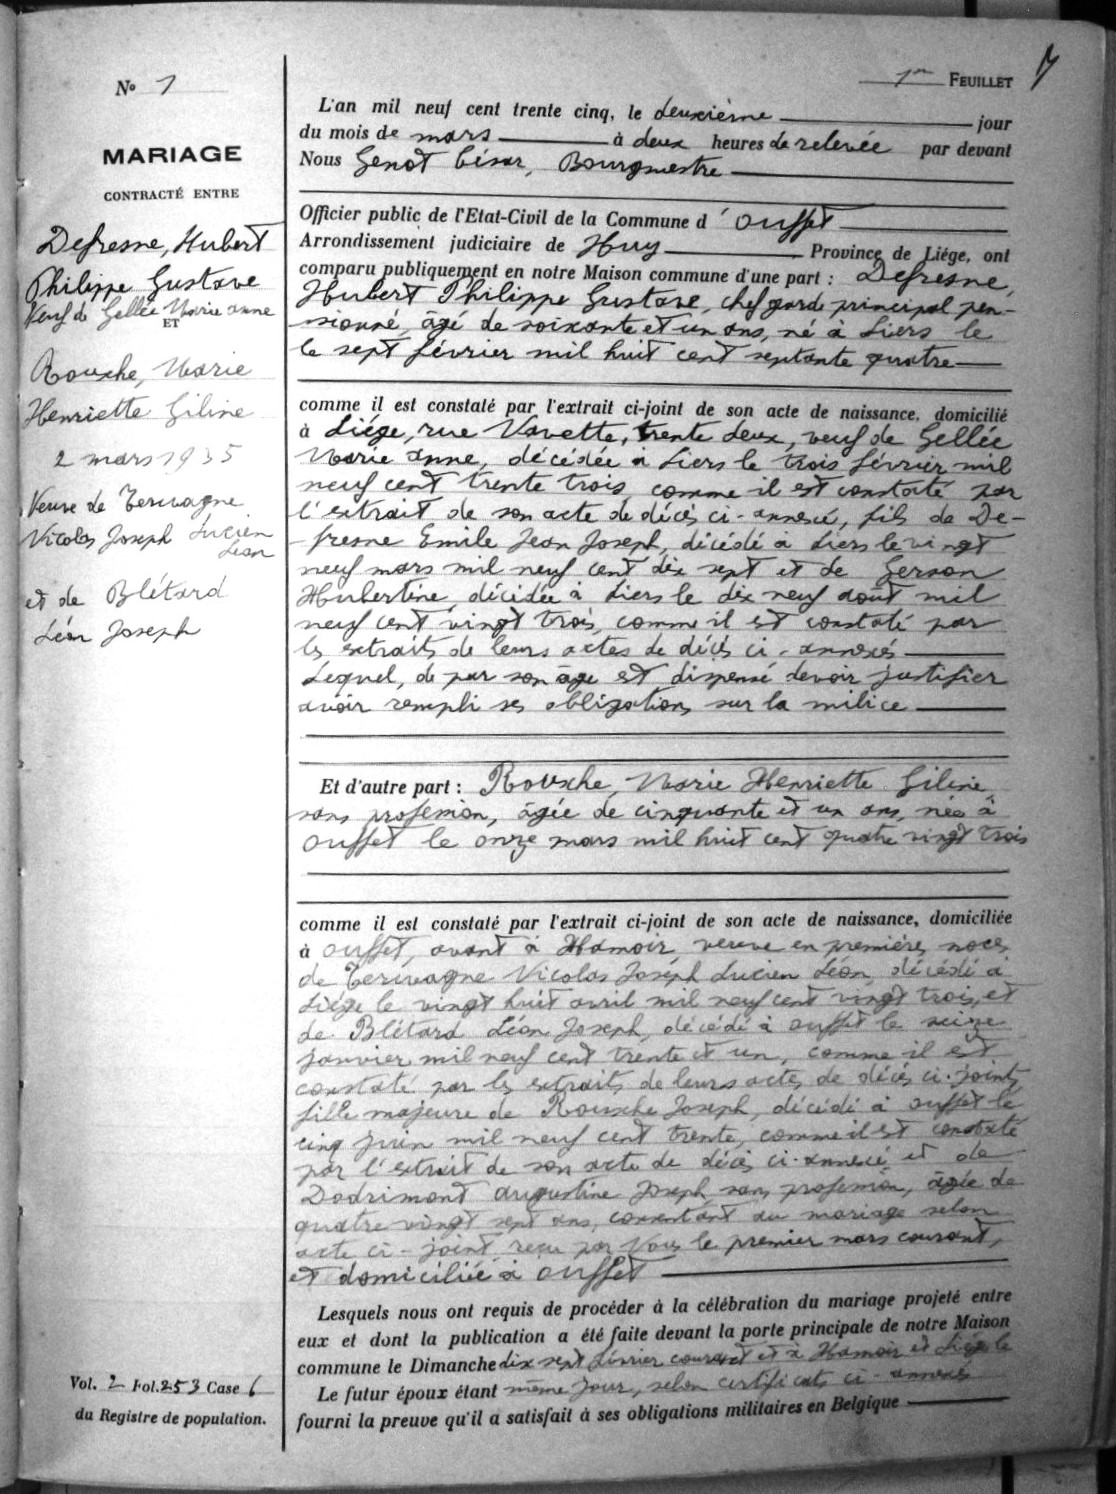 1er FEUILLET
No 1
MARIAGE
CONTRACTÉ ENTRE
Defresne, Hubert
Philippe Gustave
Veuf de Gellée Marie Anne
ET
Rouxhe, Marie
Henriette Giline
2 mars 1935
Veuve de Terwagne
Nicolas Joseph Lucien
Léon
et de Blétard
Léon Joseph
Vol. 2 Fol. 253 Case 6
du Registre de population.
L'an mil neuf cent trente cinq, le deuxième jour
du mois de mars à deux heures de relevée par devant
Nous Genot César, Bourgmestre
Officier public de l'Etat-Civil de la Commune d'Ouffet
Arrondissement judiciaire de Huy Province de Liége, ont
comparu publiquement en notre Maison commune d'une part : Defresne,
Hubert Philippe Gustave, chef garde principal pen-
sionné, âgé de soixante et un ans, né à Liers le
le sept février mil huit cent septante quatre
comme il est constaté par l'extrait ci-joint de son acte de naissance, domicilié
à Liége, rue Navette, trente deux, veuf de Gellée
Marie Anne, décédée à Liers le trois février mil
neuf cent trente trois, comme il est constaté par
l'extrait de son acte de décès ci-annexé, fils de De-
fresne Emile Jean Joseph, décédé à Liers le vingt
neuf mars mil neuf cent dix sept et de Gerson
Hubertine, décédée à Liers le dix neuf août mil
neuf cent vingt trois, comme il est constaté par
les extraits de leurs actes de décès ci-annexés
Lequel, de par son âge est dispensé devoir justifier
avoir rempli ses obligations sur la milice
Et d'autre part : Rouxhe, Marie Henriette Giline
sans profession, âgée de cinquante et un ans, née à
Ouffet le onze mars mil huit cent quatre vingt trois
comme il est constaté par l'extrait ci-joint de son acte de naissance, domiciliée
à Ouffet, avant à Hamoir, veuve en premières noces
de Terwagne Nicolas Joseph Lucien Léon, décédé à
Liége le vingt huit avril mil neuf cent vingt trois, et
de Blétard Léon Joseph, décédé à Ouffet le seize
janvier mil neuf cent trente et un, comme il est
constaté par les extraits de leurs actes de décès ci-joints,
fille majeure de Rouxhe Joseph, décédé à Ouffet le
cinq juin mil neuf cent trente, comme il est constaté
par l'extrait de son acte de décès ci-annexé et de
Dodrimont Augustine Joseph sans profession, âgée de
quatre vingt sept ans, consentant au mariage selon
acte ci-joint reçu par Nous le premier mars courant,
et domiciliée à Ouffet
Lesquels nous ont requis de procéder à la célébration du mariage projeté entre
eux et dont la publication a été faite devant la porte principale de notre Maison
commune le Dimanche dix sept février courant et à Hamoir et Liége le
même jour, selon certificats ci-annexés
Le futur époux étant
fourni la preuve qu'il a satisfait à ses obligations militaires en Belgique